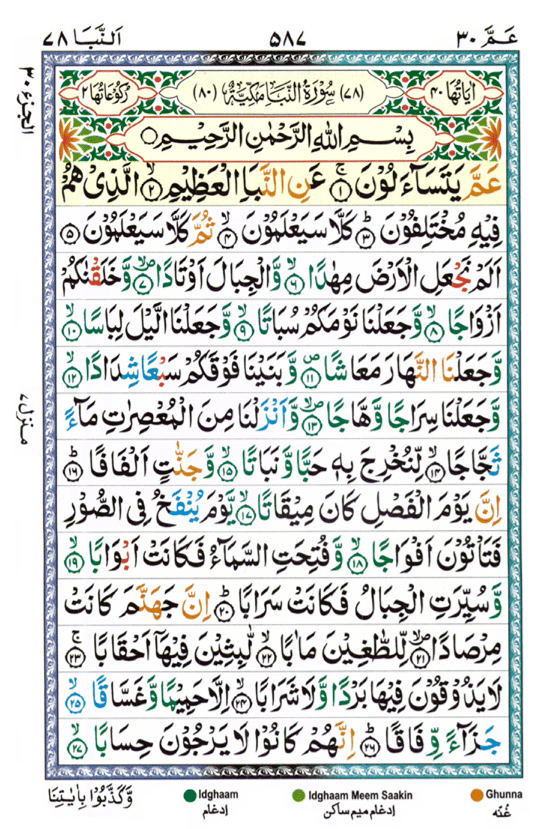 عَمَّ ٣٠
٥٨٧
اَلنَّبَا ٧٨
الجزء ٣٠
منزل ٧
اٰيَاتُهَا ٤٠
(٧٨) سُوْرَةُ النَّبَاِ مَكِّيَّةٌ (٨٠)
رُكُوْعَاتُهَا ٢
بِسْمِ اللهِ الرَّحْمٰنِ الرَّحِيْمِ
عَمَّ يَتَسَآءَلُوْنَ ۚ ١ عَنِ النَّبَاِ الْعَظِيْمِ ۙ ٢ الَّذِىْ هُمْ
فِيْهِ مُخْتَلِفُوْنَ ؕ ٣ كَلَّا سَيَعْلَمُوْنَ ۙ ٤ ثُمَّ كَلَّا سَيَعْلَمُوْنَ ٥
اَلَمْ نَجْعَلِ الْاَرْضَ مِهٰدًا ۙ ٦ وَّالْجِبَالَ اَوْتَادًا ۙ ٧ وَّخَلَقْنٰكُمْ
اَزْوَاجًا ۙ ٨ وَّجَعَلْنَا نَوْمَكُمْ سُبَاتًا ۙ ٩ وَّجَعَلْنَا الَّيْلَ لِبَاسًا ۙ ١٠
وَّجَعَلْنَا النَّهَارَ مَعَاشًا ۪ ١١ وَّبَنَيْنَا فَوْقَكُمْ سَبْعًا شِدَادًا ۙ ١٢
وَّجَعَلْنَا سِرَاجًا وَّهَّاجًا ۙ ١٣ وَّاَنْزَلْنَا مِنَ الْمُعْصِرٰتِ مَآءً
ثَجَّاجًا ۙ ١٤ لِّنُخْرِجَ بِهٖ حَبًّا وَّنَبَاتًا ۙ ١٥ وَّجَنّٰتٍ اَلْفَافًا ؕ ١٦
اِنَّ يَوْمَ الْفَصْلِ كَانَ مِيْقَاتًا ۙ ١٧ يَّوْمَ يُنْفَخُ فِى الصُّوْرِ
فَتَاْتُوْنَ اَفْوَاجًا ۙ ١٨ وَّفُتِحَتِ السَّمَآءُ فَكَانَتْ اَبْوَابًا ۙ ١٩
وَّسُيِّرَتِ الْجِبَالُ فَكَانَتْ سَرَابًا ؕ ٢٠ اِنَّ جَهَنَّمَ كَانَتْ
مِرْصَادًا ۙ ٢١ لِّلطّٰغِيْنَ مَاٰبًا ۙ ٢٢ لّٰبِثِيْنَ فِيْهَاۤ اَحْقَابًا ۚ ٢٣
لَا يَذُوْقُوْنَ فِيْهَا بَرْدًا وَّلَا شَرَابًا ۙ ٢٤ اِلَّا حَمِيْمًا وَّغَسَّاقًا ۙ ٢٥
جَزَآءً وِّفَاقًا ؕ ٢٦ اِنَّهُمْ كَانُوْا لَا يَرْجُوْنَ حِسَابًا ۙ ٢٧
وَّكَذَّبُوْا بِاٰيٰتِنَا
Idghaam
إدغام
Idghaam Meem Saakin
إدغام ميم ساكن
Ghunna
غُنّه